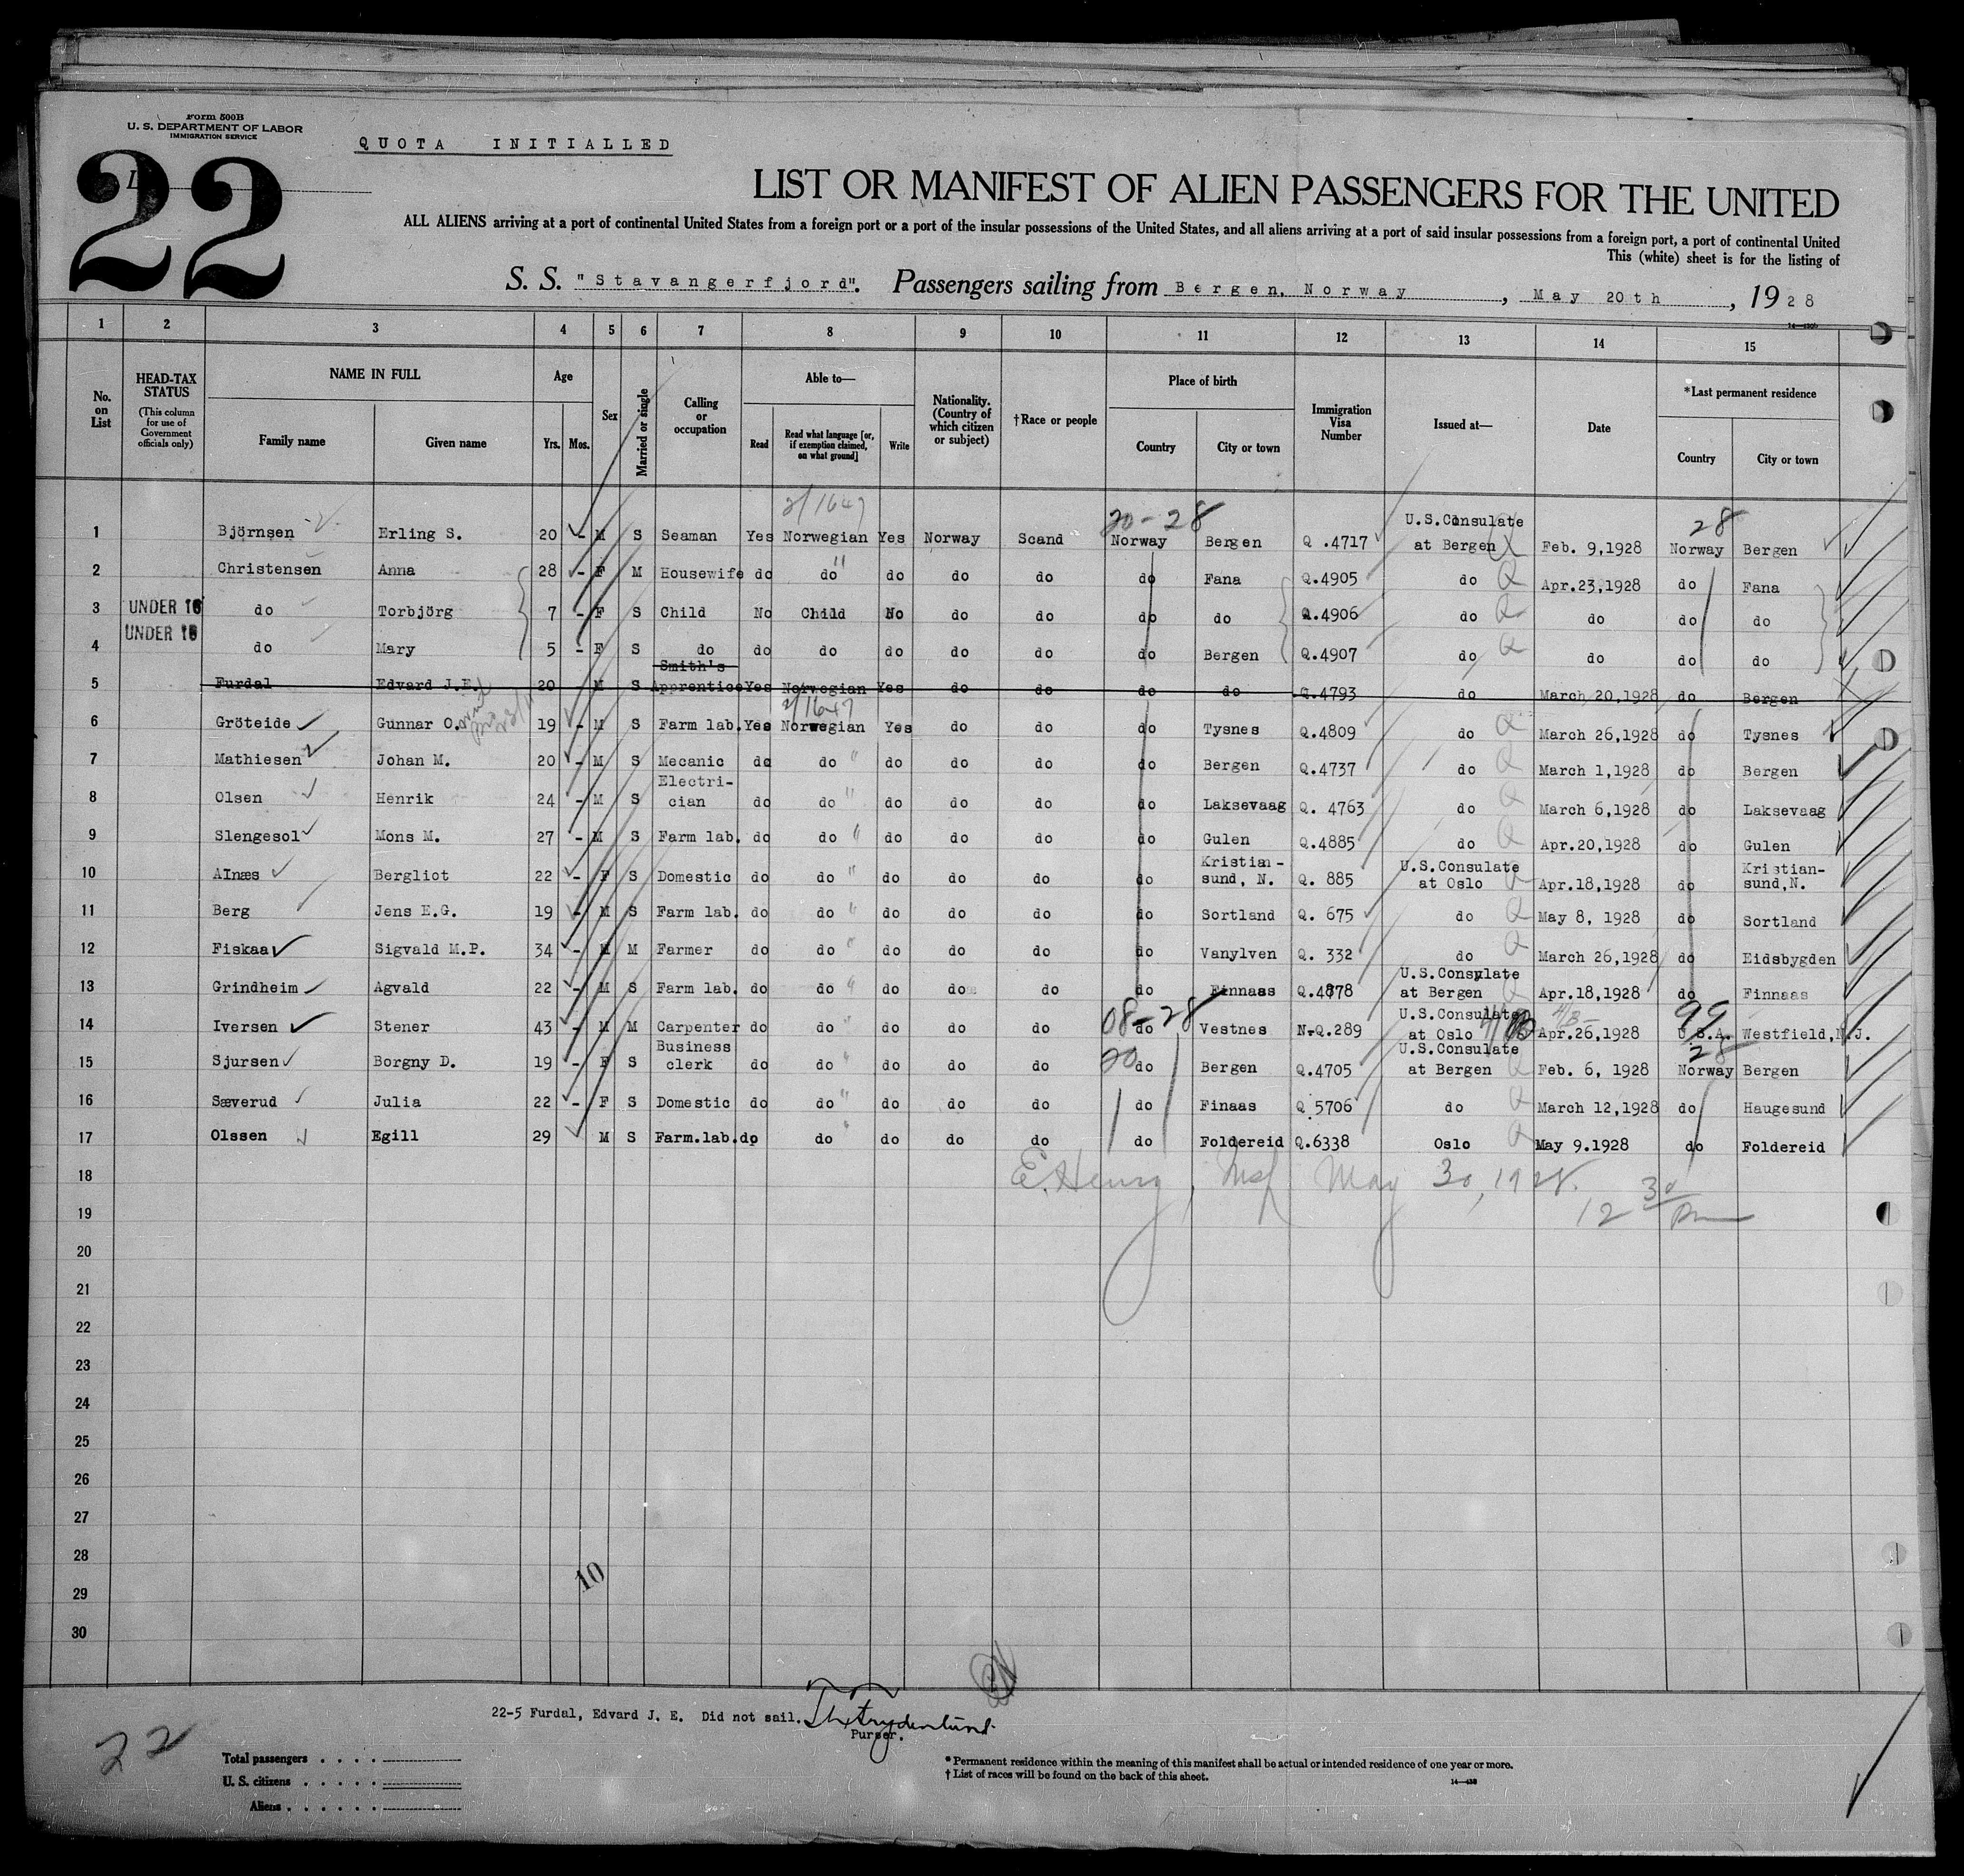 Form 500B
U. S. DEPARTMENT OF LABOR
IMMIGRATION SERVICE
QUOTA INITIALLED
22
LIST OR MANIFEST OF ALIEN PASSENGERS FOR THE UNITED
ALL ALIENS arriving at a port of continental United States from a foreign port or a port of the insular possessions of the United States, and all aliens arriving at a port of said insular possessions from a foreign port, a port of continental United
This (white) sheet is for the listing of
S. S. "Stavangerfjord". Passengers sailing from Bergen, Norway, May 20th, 1928
1 2 3 4 5 6 7 8 9 10 11 12 13 14 15
No. on List HEAD-TAX STATUS (This column for use of Government officials only) NAME IN FULL Family name Given name Age Yrs. Mos. Sex Married or single Calling or occupation Able to— Read Read what language [or, if exemption claimed, on what ground] Write Nationality. (Country of which citizen or subject) †Race or people Place of birth Country City or town Immigration Visa Number Issued at— Date *Last permanent residence Country City or town
2/1647 20-28 28
1 Björnsen Erling S. 20 - M S Seaman Yes Norwegian Yes Norway Scand Norway Bergen Q .4717 U.S.Consulate at Bergen Q Feb. 9,1928 Norway Bergen
2 Christensen Anna 28 - F M Housewife do do " do do do do Fana Q.4905 do Q Apr.23,1928 do Fana
3 UNDER 16 do Torbjörg 7 - F S Child No Child No do do do do Q.4906 do Q do do do
4 UNDER 16 do Mary 5 - F S do do do do do do do Bergen Q.4907 do Q do do do
5 Furdal Edvard J.E. 20 M S Smith's Apprentice Yes Norwegian Yes do do do do Q.4793 do March 20,1928 do Bergen
2/1647
6 Gröteide Gunnar O. 19 - M S Farm lab. Yes Norwegian Yes do do do Tysnes Q.4809 do Q March 26,1928 do Tysnes
7 Mathiesen Johan M. 20 - M S Mecanic do do " do do do do Bergen Q.4737 do Q March 1,1928 do Bergen
8 Olsen Henrik 24 - M S Electri-cian do do " do do do do Laksevaag Q. 4763 do Q March 6,1928 do Laksevaag
9 Slengesol Mons M. 27 - M S Farm lab. do do " do do do do Gulen Q.4885 do Q Apr.20,1928 do Gulen
10 Alnæs Bergliot 22 - F S Domestic do do " do do do do Kristian-sund, N. Q. 885 U.S.Consulate at Oslo Q Apr.18,1928 do Kristian-sund,N.
11 Berg Jens E.G. 19 - M S Farm lab. do do " do do do do Sortland Q. 675 do Q May 8, 1928 do Sortland
12 Fiskaa Sigvald M.P. 34 - M M Farmer do do " do do do do Vanylven Q. 332 do Q March 26,1928 do Eidsbygden
13 Grindheim Agvald 22 - M S Farm lab. do do " do do do do Finnaas Q.4878 U.S.Consulate at Bergen Q Apr.18,1928 do Finnaas
08-28 99
14 Iversen Stener 43 - M M Carpenter do do " do do do do Vestnes N-Q.289 U.S.Consulate at Oslo Apr.26,1928 U.S.A. Westfield,N.J.
20 28
15 Sjursen Borgny D. 19 - F S Business clerk do do " do do do do Bergen Q.4705 U.S.Consulate at Bergen Q Feb. 6, 1928 Norway Bergen
16 Sæverud Julia 22 - F S Domestic do do " do do do do Finaas Q.5706 do Q March 12,1928 do Haugesund
17 Olssen Egill 29 M S Farm.lab. do do " do do do do Foldereid Q.6338 Oslo Q May 9.1928 do Foldereid
18 E. Henry, Insp. May 30, 1928.
19 12 30 Pm
20
21
22
23
24
25
26
27
28
29 10
30
22-5 Furdal, Edvard J. E. Did not sail.
Purser.
22
Total passengers
U. S. citizens
Aliens
* Permanent residence within the meaning of this manifest shall be actual or intended residence of one year or more.
† List of races will be found on the back of this sheet.